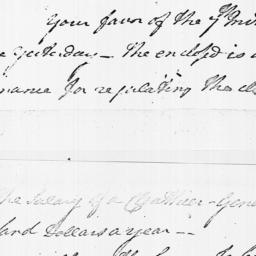 Your favor of the 7th Inst
yesterday — the enclosed is a
nance for regulating the
the Salary of a Gauther - Gene
sand Dollars a year —